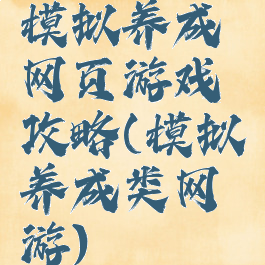 模拟养成
网页游戏
攻略(模拟
养成类网
游)